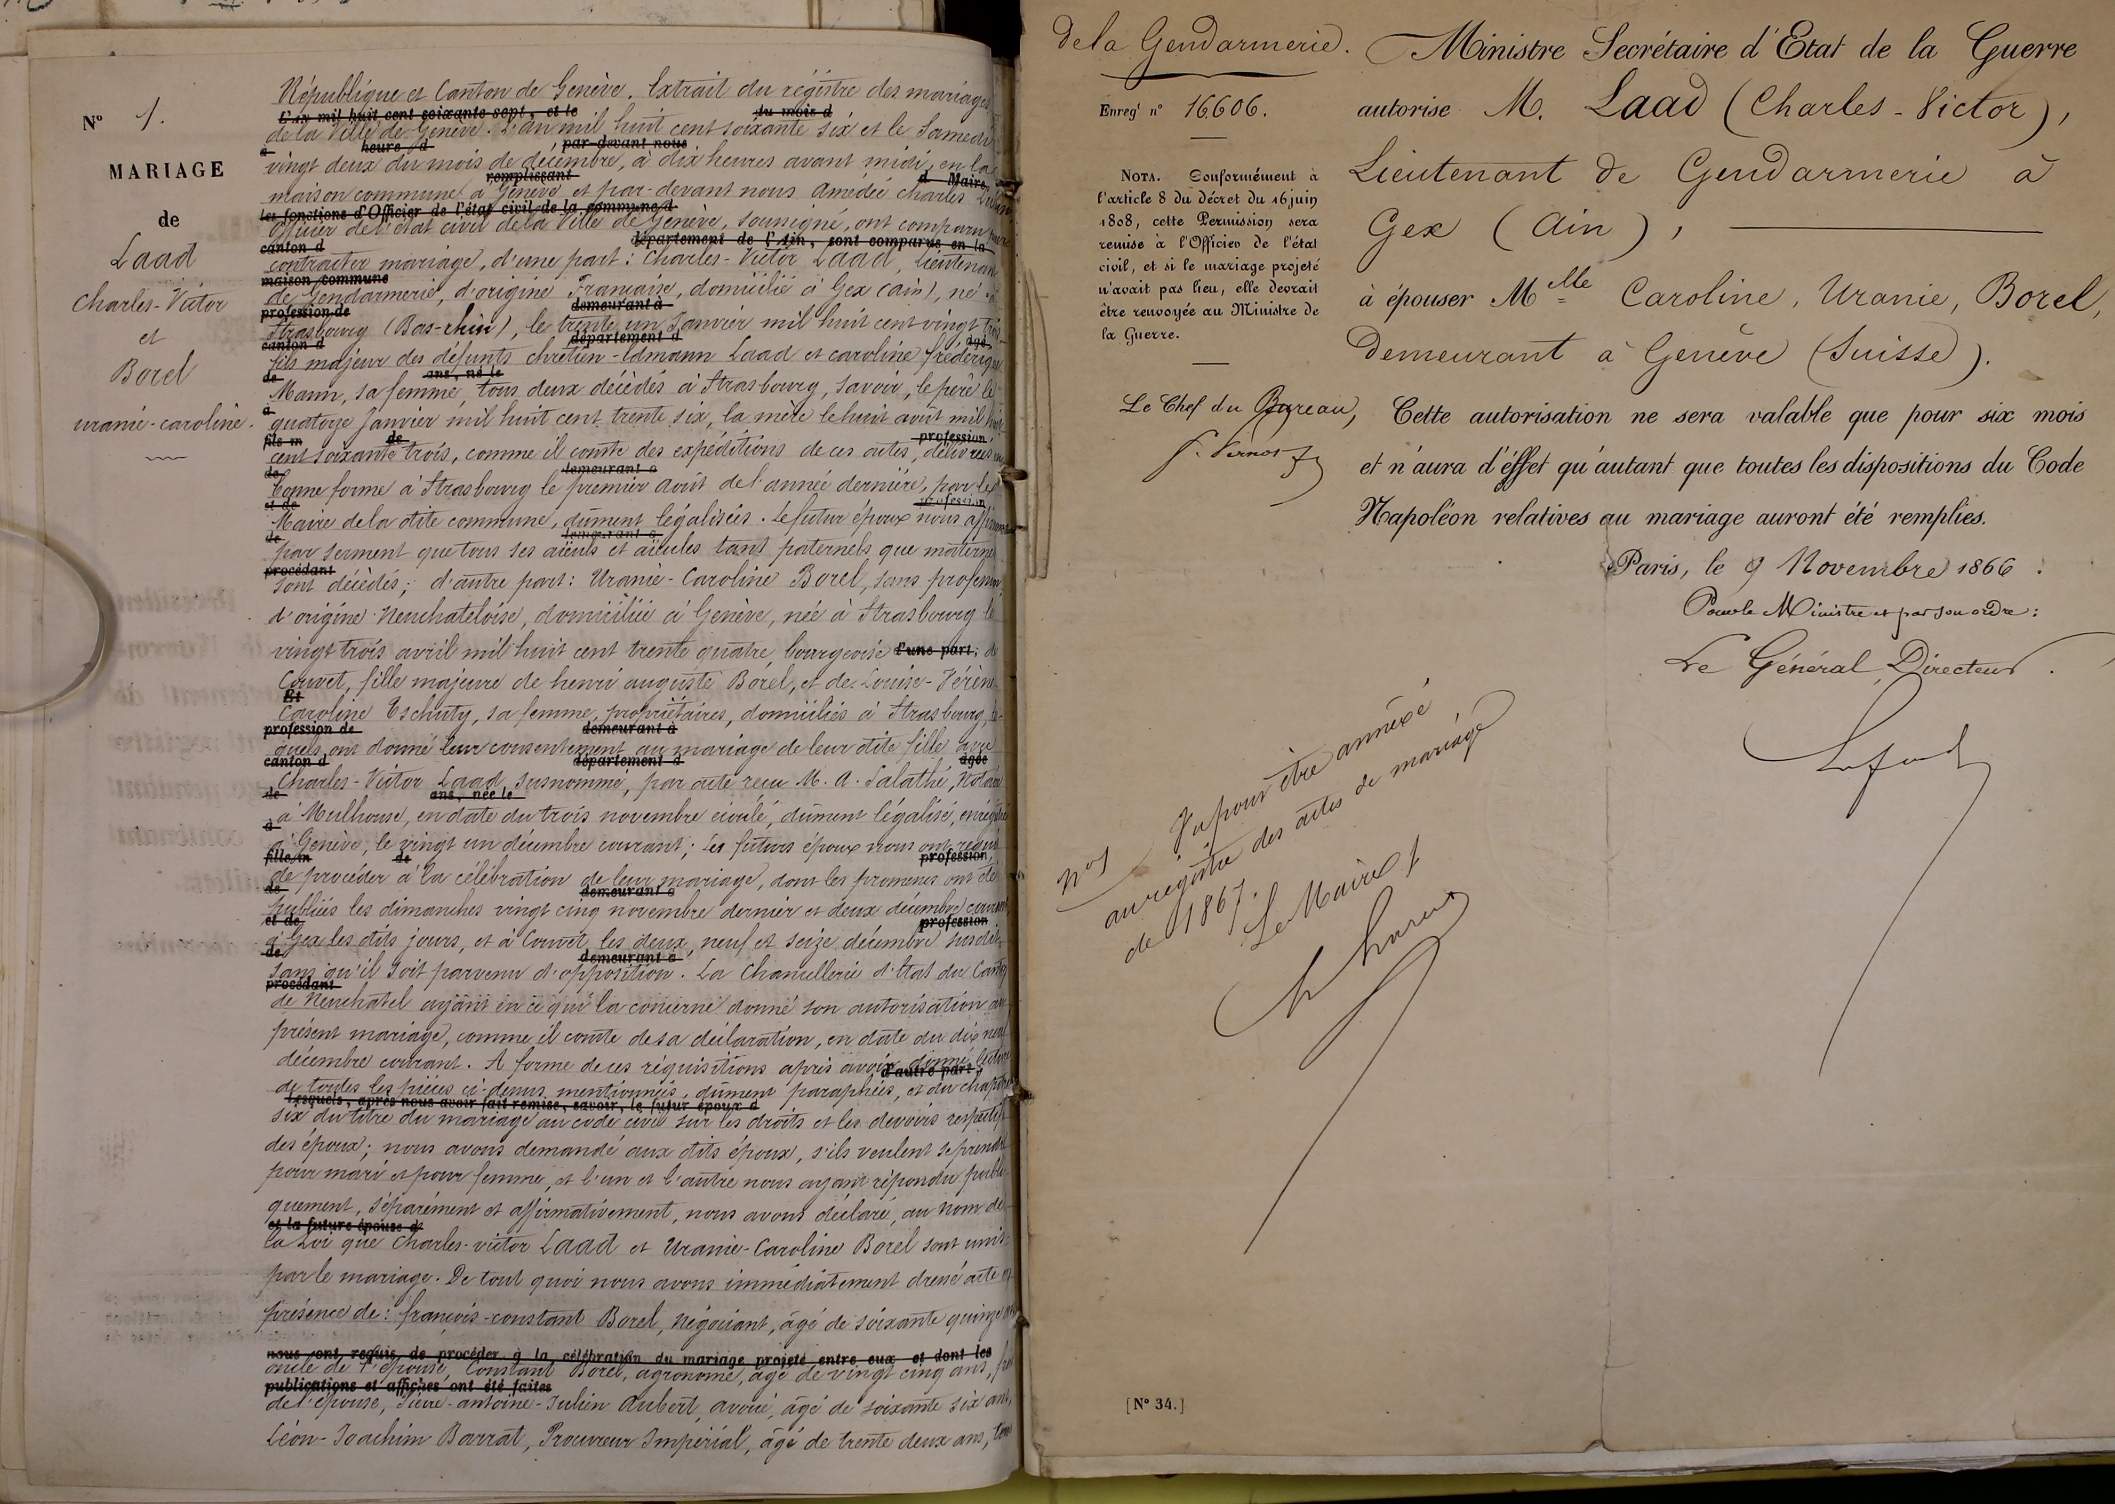 Nº 1.
MARIAGE
de
Laad
Charles-Victor
et
Borel
uranie-caroline.
République et Canton de Genève. Extrait du régistre des mariages
L'an mil huit cent soixante-sept, et le du mois d
de la Ville de Genève. L'an mil huit cent soixante six et le Samedi
à heure d par-devant nous
vingt deux du mois de décembre, à dix heures avant midi, en la
remplissant d Maire,
maison commune à Genève et par-devant nous Amédée Charles
les fonctions d'Officier de l'état civil de la commune d
officier de l'état civil de la Ville de Genève, soussigné, ont comparu pour
canton d département de l'Ain, sont comparus en la
contracter mariage, d'une part: Charles-Victor Laad, Lieutenant
maison commune
de Gendarmerie, d'origine Française, domicilié à Gex (Ain), né à
profession de demeurant à
Strasbourg (Bas-rhin), le trente un Janvier mil huit cent vingt trois
canton d département d âgé
fils majeur des défunts chrétien-Edmann Laad et caroline frédérique
de ans, né le
Mann, sa femme, tous deux décédés à Strasbourg, savoir, le père le
à
quatorze Janvier mil huit cent trente six, la mère le huit août mil huit
fils m de profession
cent soixante trois, comme il conste des expéditions de ces actes, délivrées en
de demeurant à
bonne forme à Strasbourg le premier août de l'année dernière, par le
et de profession
Maire de la dite commune, dûment légalisées. Le futur époux nous affirme
de demeurant à
par serment que tous ses aïeuls et aïeules tant paternels que maternels
procédant
sont décédés; d'autre part: Uranie-Caroline Borel, sans profession,
d'origine Neuchateloise, domiciliée à Genève, née à Strasbourg le
vingt trois avril mil huit cent trente quatre, bourgeoise d'une part; de
Couvet, fille majeure de henri auguste Borel, et de Louise-Vérène
Et
Caroline Eschuty, sa femme, propriétaires, domiciliés à Strasbourg, les-
profession de demeurant à
quels ont donné leur consentement au mariage de leur dite fille avec
canton d département d âgée
Charles-Victor Laad, susnommé, par acte reçu M. A. Salathé, Notaire
de ans, née le
à Mulhouse, en date du trois novembre écoulé, dûment légalisé, enrégistré
à
à Genève, le vingt un décembre courant; Les futurs époux nous ont requis
fille m de profession
de procéder à la célébration de leur mariage, dont les promesses ont été
de demeurant à
publiées les dimanches vingt cinq novembre dernier et deux décembre courant
et de profession
à Gex les dits jours, et à Couvet, les deux, neuf et seize décembre susdit
de demeurant à
sans qu'il soit parvenu d'opposition. La Chancellerie d'Etat du Canton
procédant
de Neuchatel ayant en ce qui la concerne donné son autorisation au
présent mariage, comme il conste de sa déclaration, en date du dix neuf
décembre courant. A forme de ces réquisitions après avoir donné lecture
d'autre part;
de toutes les pièces ci-dessus mentionnées, dûment paraphées, et du chapitre
lesquels, après nous avoir fait remise, savoir, le futur époux d
six du titre du mariage au code civil sur les droits et les devoirs respectifs
des époux; nous avons demandé aux dits époux, s'ils veulent se prendre
pour mari et pour femme, et l'un et l'autre nous ayant répondu publi-
quement, séparément et affirmativement, nous avons déclaré, au nom de
et la future épouse d
la Loi que Charles-victor Laad et Uranie-Caroline Borel sont unis
par le mariage. De tout quoi nous avons immédiatement dressé acte en
présence de: françois-constant Borel, Négociant, âgé de soixante quinze ans
nous ont requis de procéder à la célébration du mariage projeté entre eux et dont les
oncle de l'épouse, Constant Borel, agronome, âgé de vingt cinq ans, frère
publications et affiches ont été faites
de l'épouse, Pierre-antoine-Julien Aubert, avoué, âgé de soixante six ans,
Léon-Joachim Barrat, Procureur Impérial, âgé de trente deux ans, tous
de la Gendarmerie.
Enreg.t n.º 16606.
NOTA. Conformément à
l'article 8 du décret du 16 juin
1808, cette Permission sera
remise à l'Officier de l'état
civil, et si le mariage projeté
n'avait pas lieu, elle devrait
être renvoyée au Ministre de
la Guerre.
Le Chef du Bureau,
Ministre Secrétaire d'Etat de la Guerre
autorise M. Laad (Charles-Victor),
Lieutenant de Gendarmerie à
Gex (Ain),
à épouser Melle Caroline, Uranie, Borel,
demeurant à Genève (Suisse).
Cette autorisation ne sera valable que pour six mois
et n'aura d'éffet qu'autant que toutes les dispositions du Code
Napoléon relatives au mariage auront été remplies.
Paris, le 9 Novembre 1866.
Pour le Ministre et par son ordre:
Le Général Directeur.
Nº 1 Vu pour être annexé
au régistre des actes de mariage
de 1867.
Le Maire
[Nº 34.]